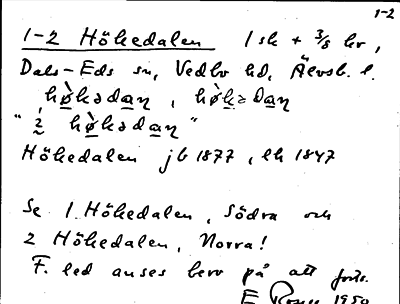 1-2
1-2 Hökedalen 1 sk + 3/8 hv,
Dals-Eds sn, Vedbo hd, Älvsb. l.
hø̀kədaņ, hø̀kədaņ
"i hø̀kədaņ"
Hökedalen jb 1877, lk 1847
Se 1 Hökedalen, Södra och
2 Hökedalen, Norra!
F. led anses bero på att forts.
E 1950